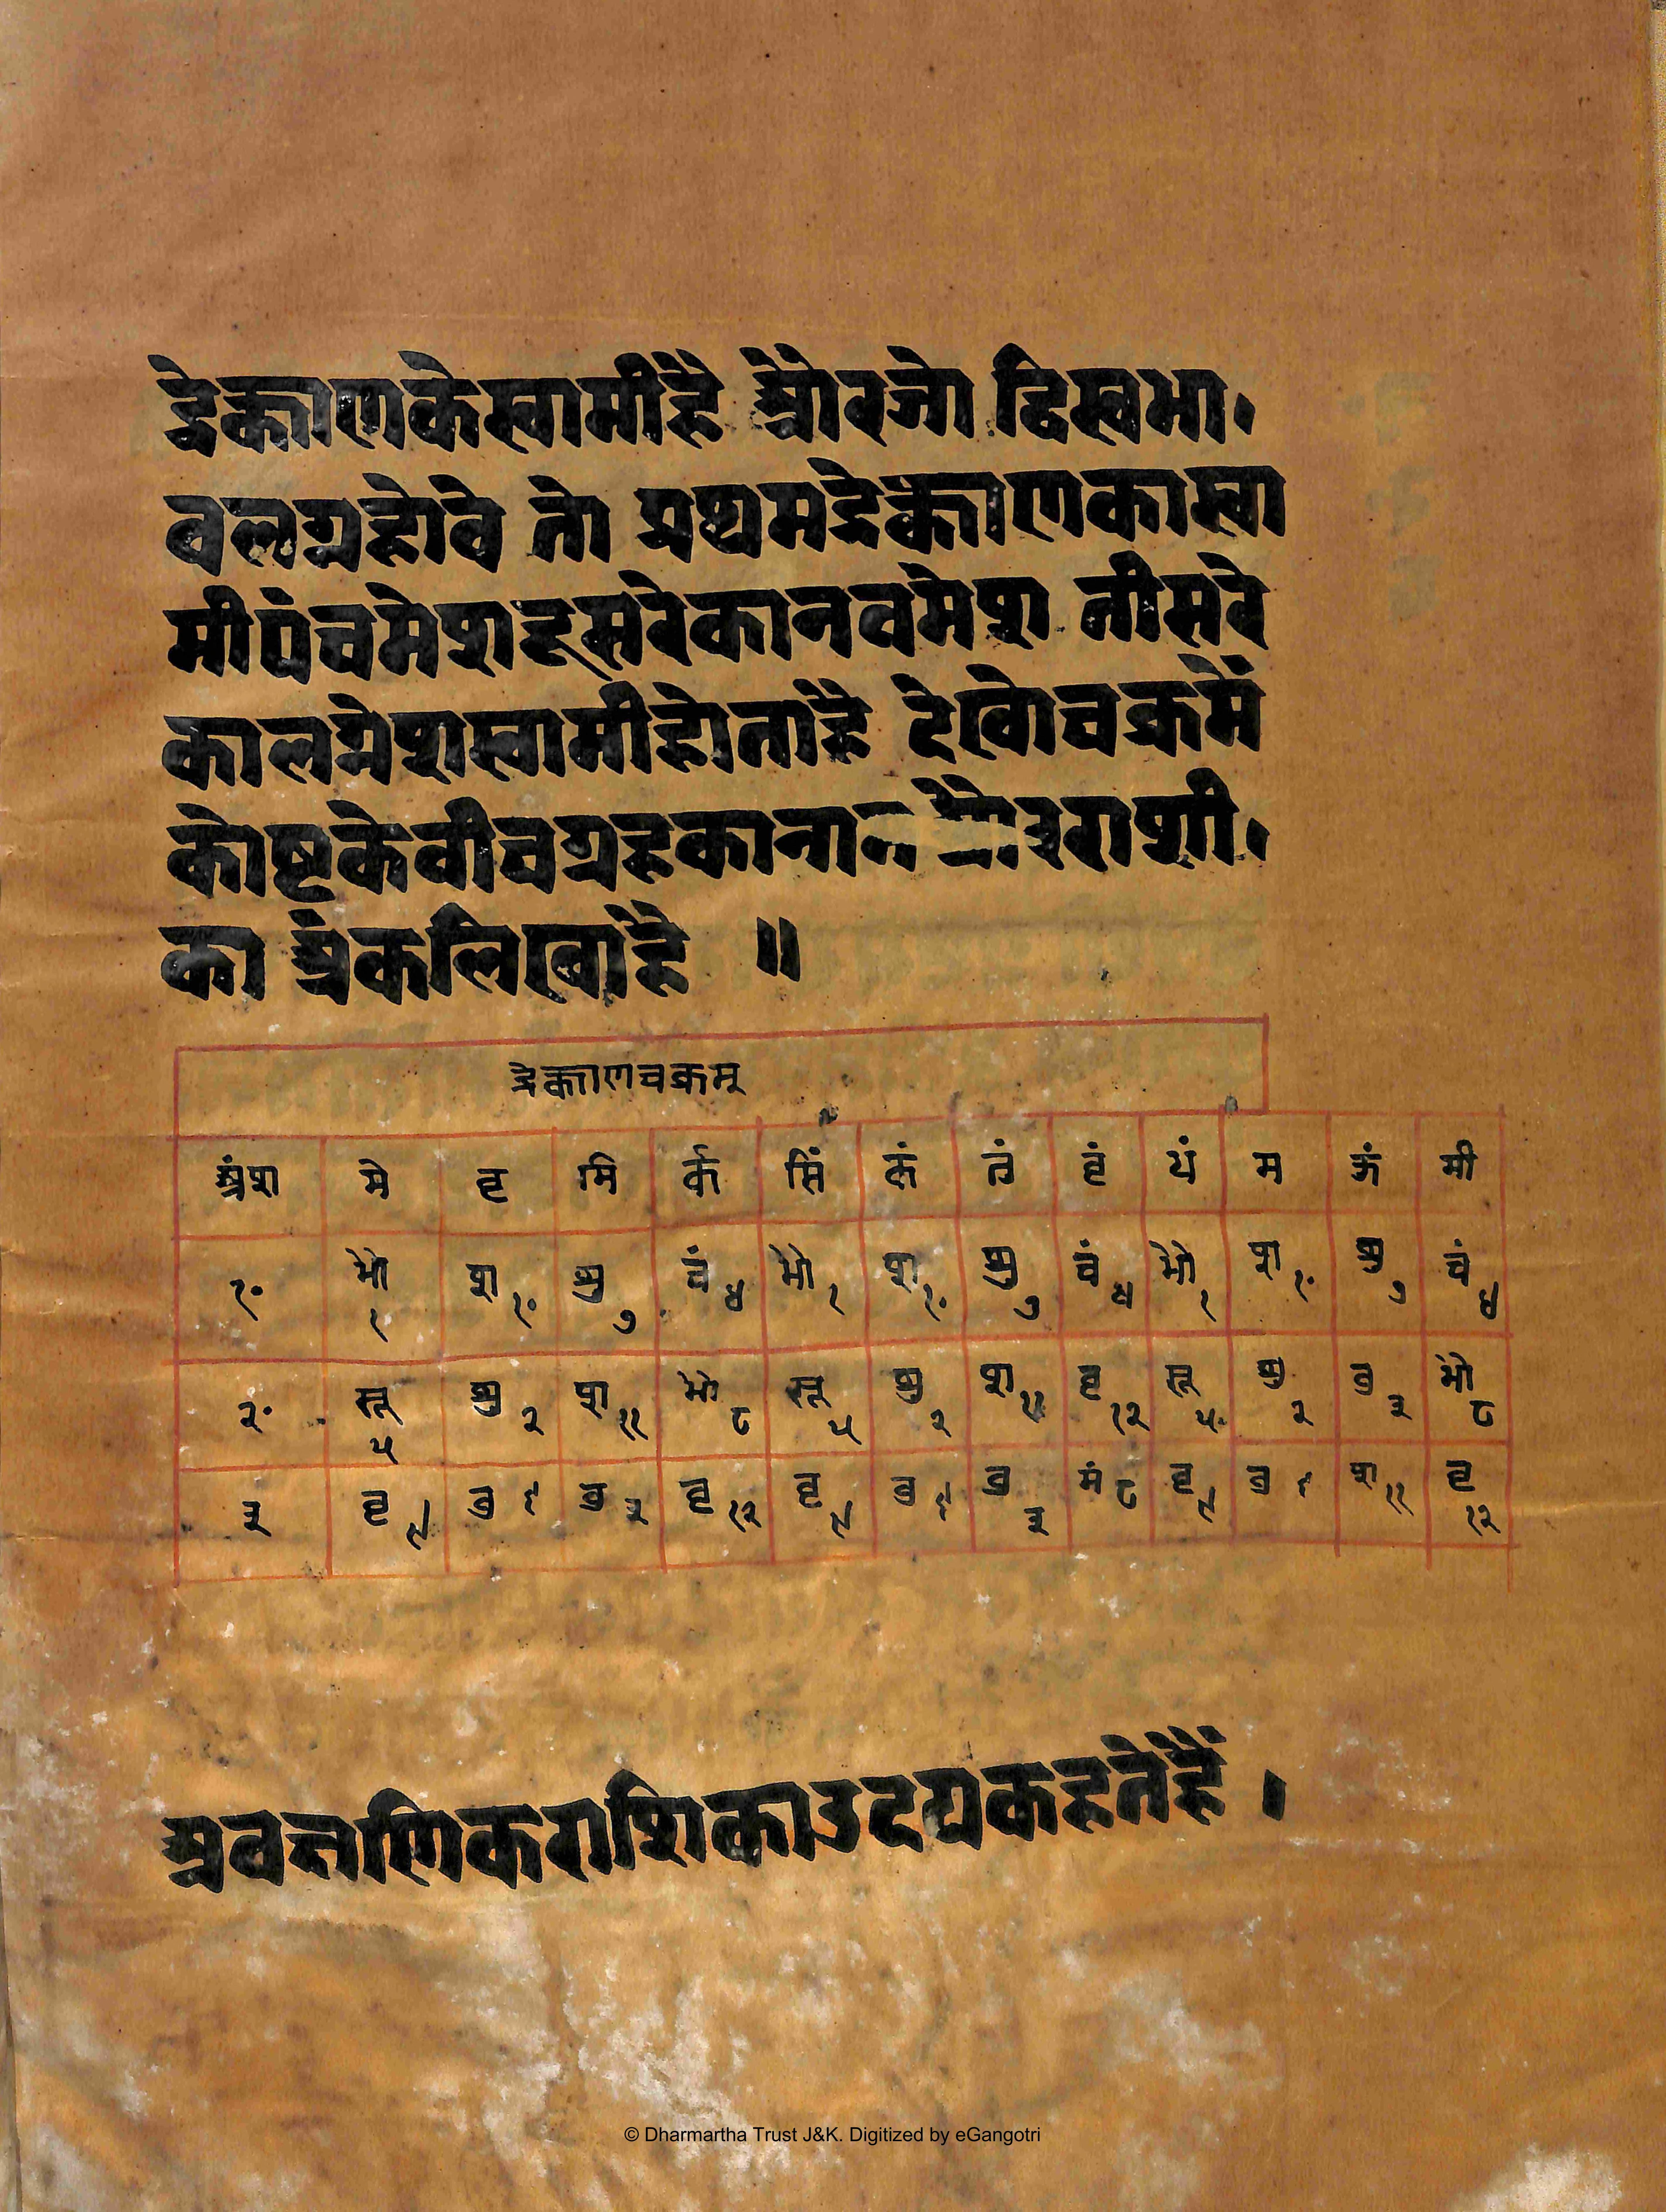 द्रेक्काणकेस्वामीहै औरजो द्विस्वभा।
वलग्नहोवे तो प्रथमद्रेक्काणकास्वा
मीपंचमेशदूसरेकानवमेश तीसरे
कालग्नेशस्वामीहोताहै देखोचक्रमें
कोष्टकेवीचग्रहकानाम औरराशी।
का अंकलिखाहै ॥
द्रेक्काणचक्रम्
अंश मे वृ मि र्क सिं कं तं वृं धं म कुं मी
१॰ भौ १ श १॰ शु ७ चं ४ भौ १ श १॰ शु ७ चं ४ भौ १ श १॰ शु ७ चं ४
२॰ सू ५ शु २ श ११ भौ ८ सू ५ शु २ श ११ वृ १२ सू ५ शु २ बु ३ भौ ८
३ वृ ९ बु ६ बु ३ वृ १२ वृ ९ बु ६ बु ३ मं ८ वृ ९ बु ६ श ११ वृ १२
अवलग्णिकराशिकाउदयकहतेहैं ।
© Dharmartha Trust J&K. Digitized by eGangotri